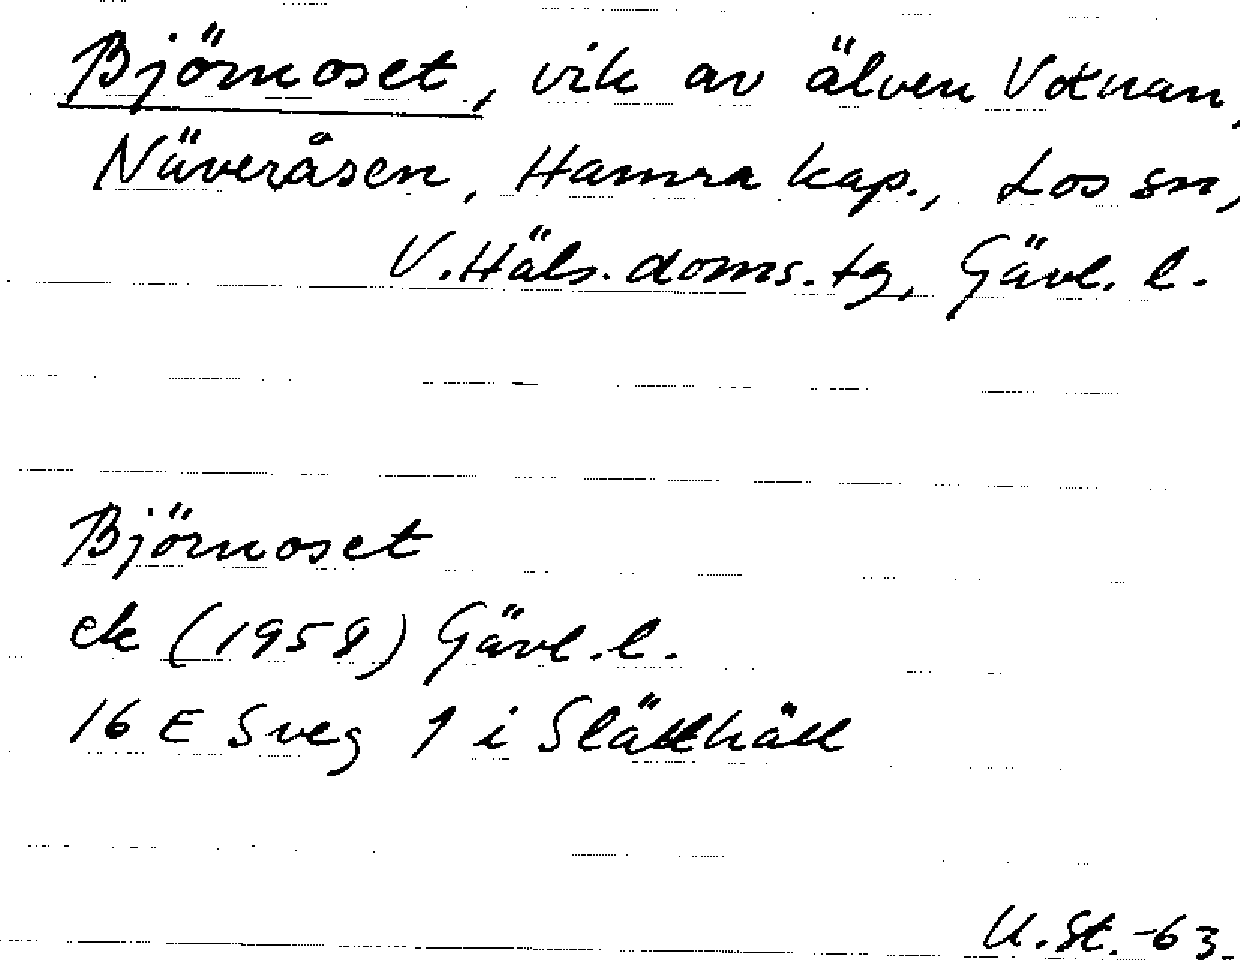 Björnoset, vik av älven Voxnan,
Näveråsen, Hamra kap., Los sn,
V. Häls. doms. tg, Gävl. l.
Björnoset
ek (1958) Gävl. l.
16 E Sveg 1 i Slätthäll
U. St. -63.